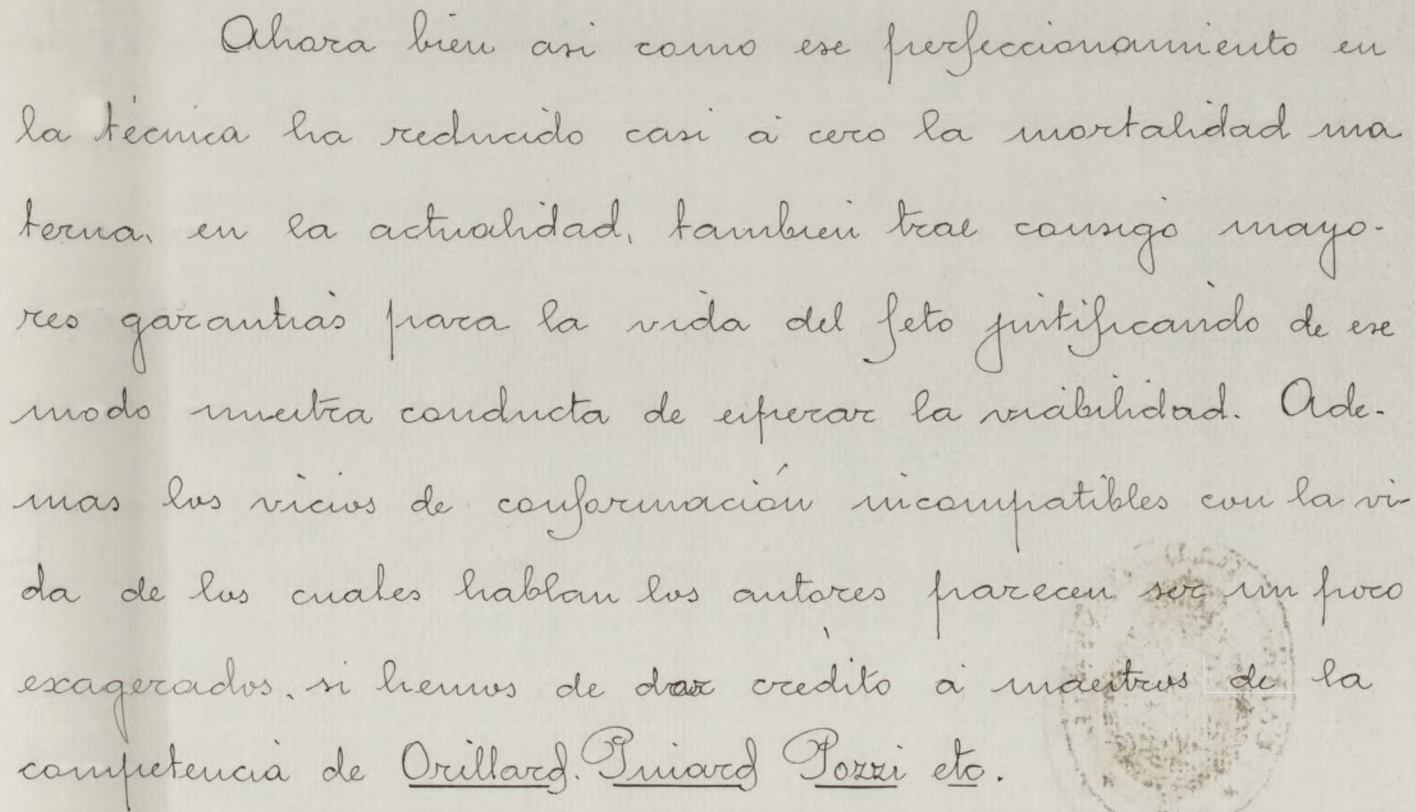 Ahora bien asi como ese perfeccionamiento en
la técnica ha reducido casi á cero la mortalidad ma
terna, en la actualidad, tambien trae consigo mayo-
res garantias para la vida del feto justificando de ese
modo nuestra conducta de esperar la viabilidad. Ade-
mas los vicios de conformación incompatibles con la vi-
da de los cuales hablan los autores parecen ser un poco
exagerados, si hemos de dar credito á maestros de la
competencia de Orillard. Piniard Pozzi etc.